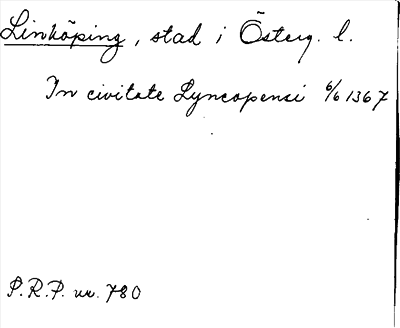 Linköping, stad i Österg. l.
In civitate Lyncopensi 6/6 1367
P.R.P. nr. 780